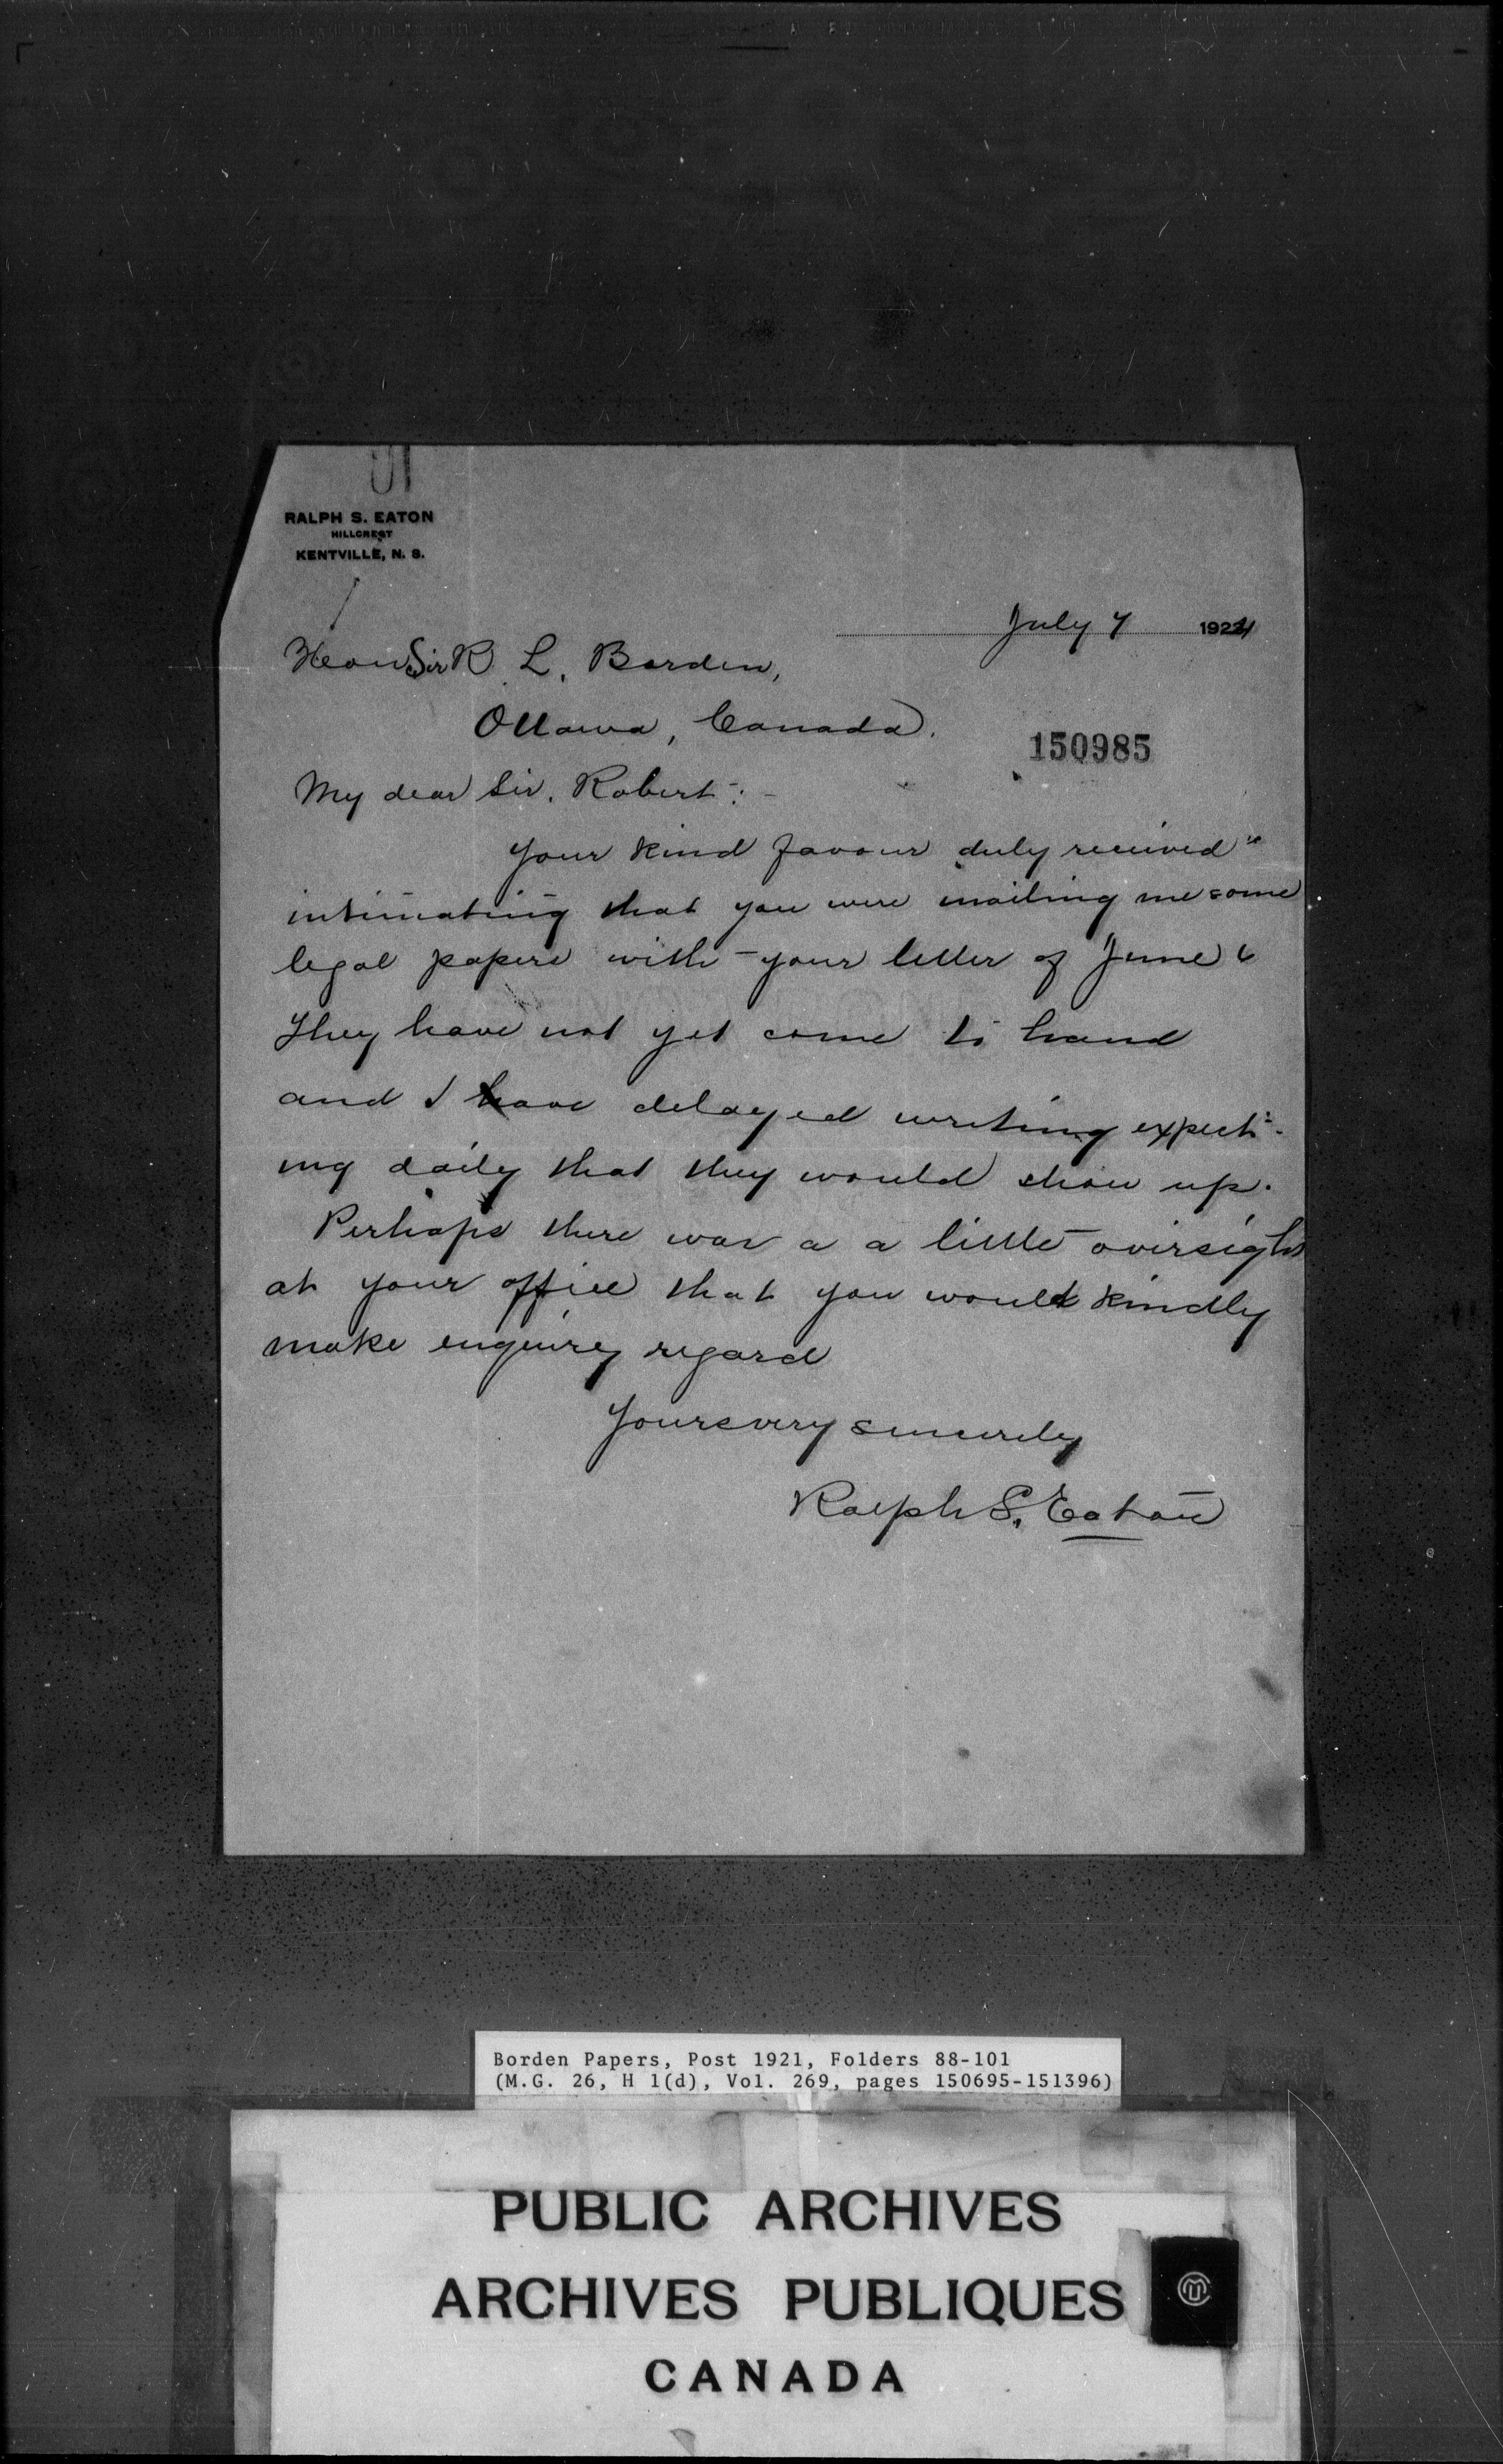 RALPH S. EATON
HILLCREST
KENTVILLE, N. S.
July 7 1924
Hon Sir R. L. Borden,
Ottawa, Canada.
150985
My dear Sir. Robert:-
Your kind favour duly received
intimating that you were mailing me some
legal papers with your letter of June 6
They have not yet come to hand
and I have delayed writing expect-
ing daily that they would show up.
Perhaps there was a a little oversight
at your office that you would kindly
make enquirey regard
Yours very sincerely
Ralph S. Eaton
Borden Papers, Post 1921, Folders 88-101
(M.G. 26, H 1(d), Vol. 269, pages 150695-151396)
PUBLIC ARCHIVES
ARCHIVES PUBLIQUES
CANADA